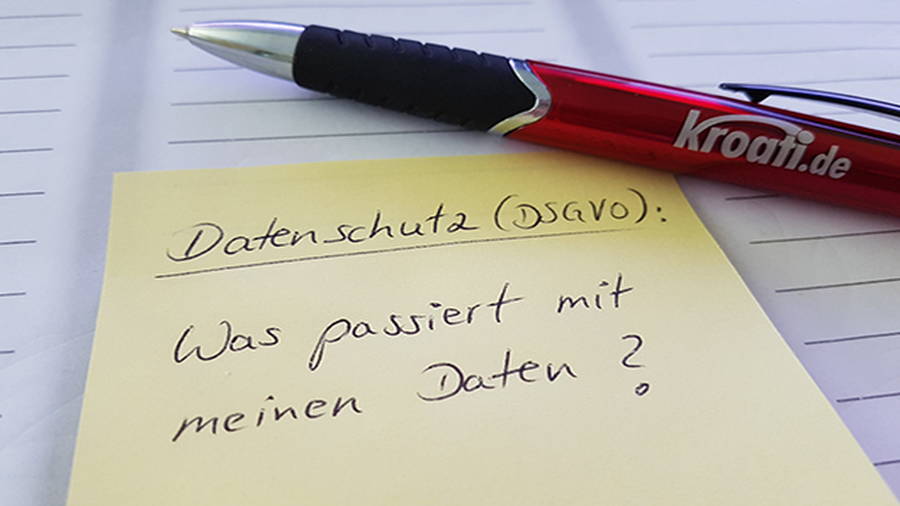 Kroati.de
Datenschutz (DSGVO):
Was passiert mit
meinen Daten?